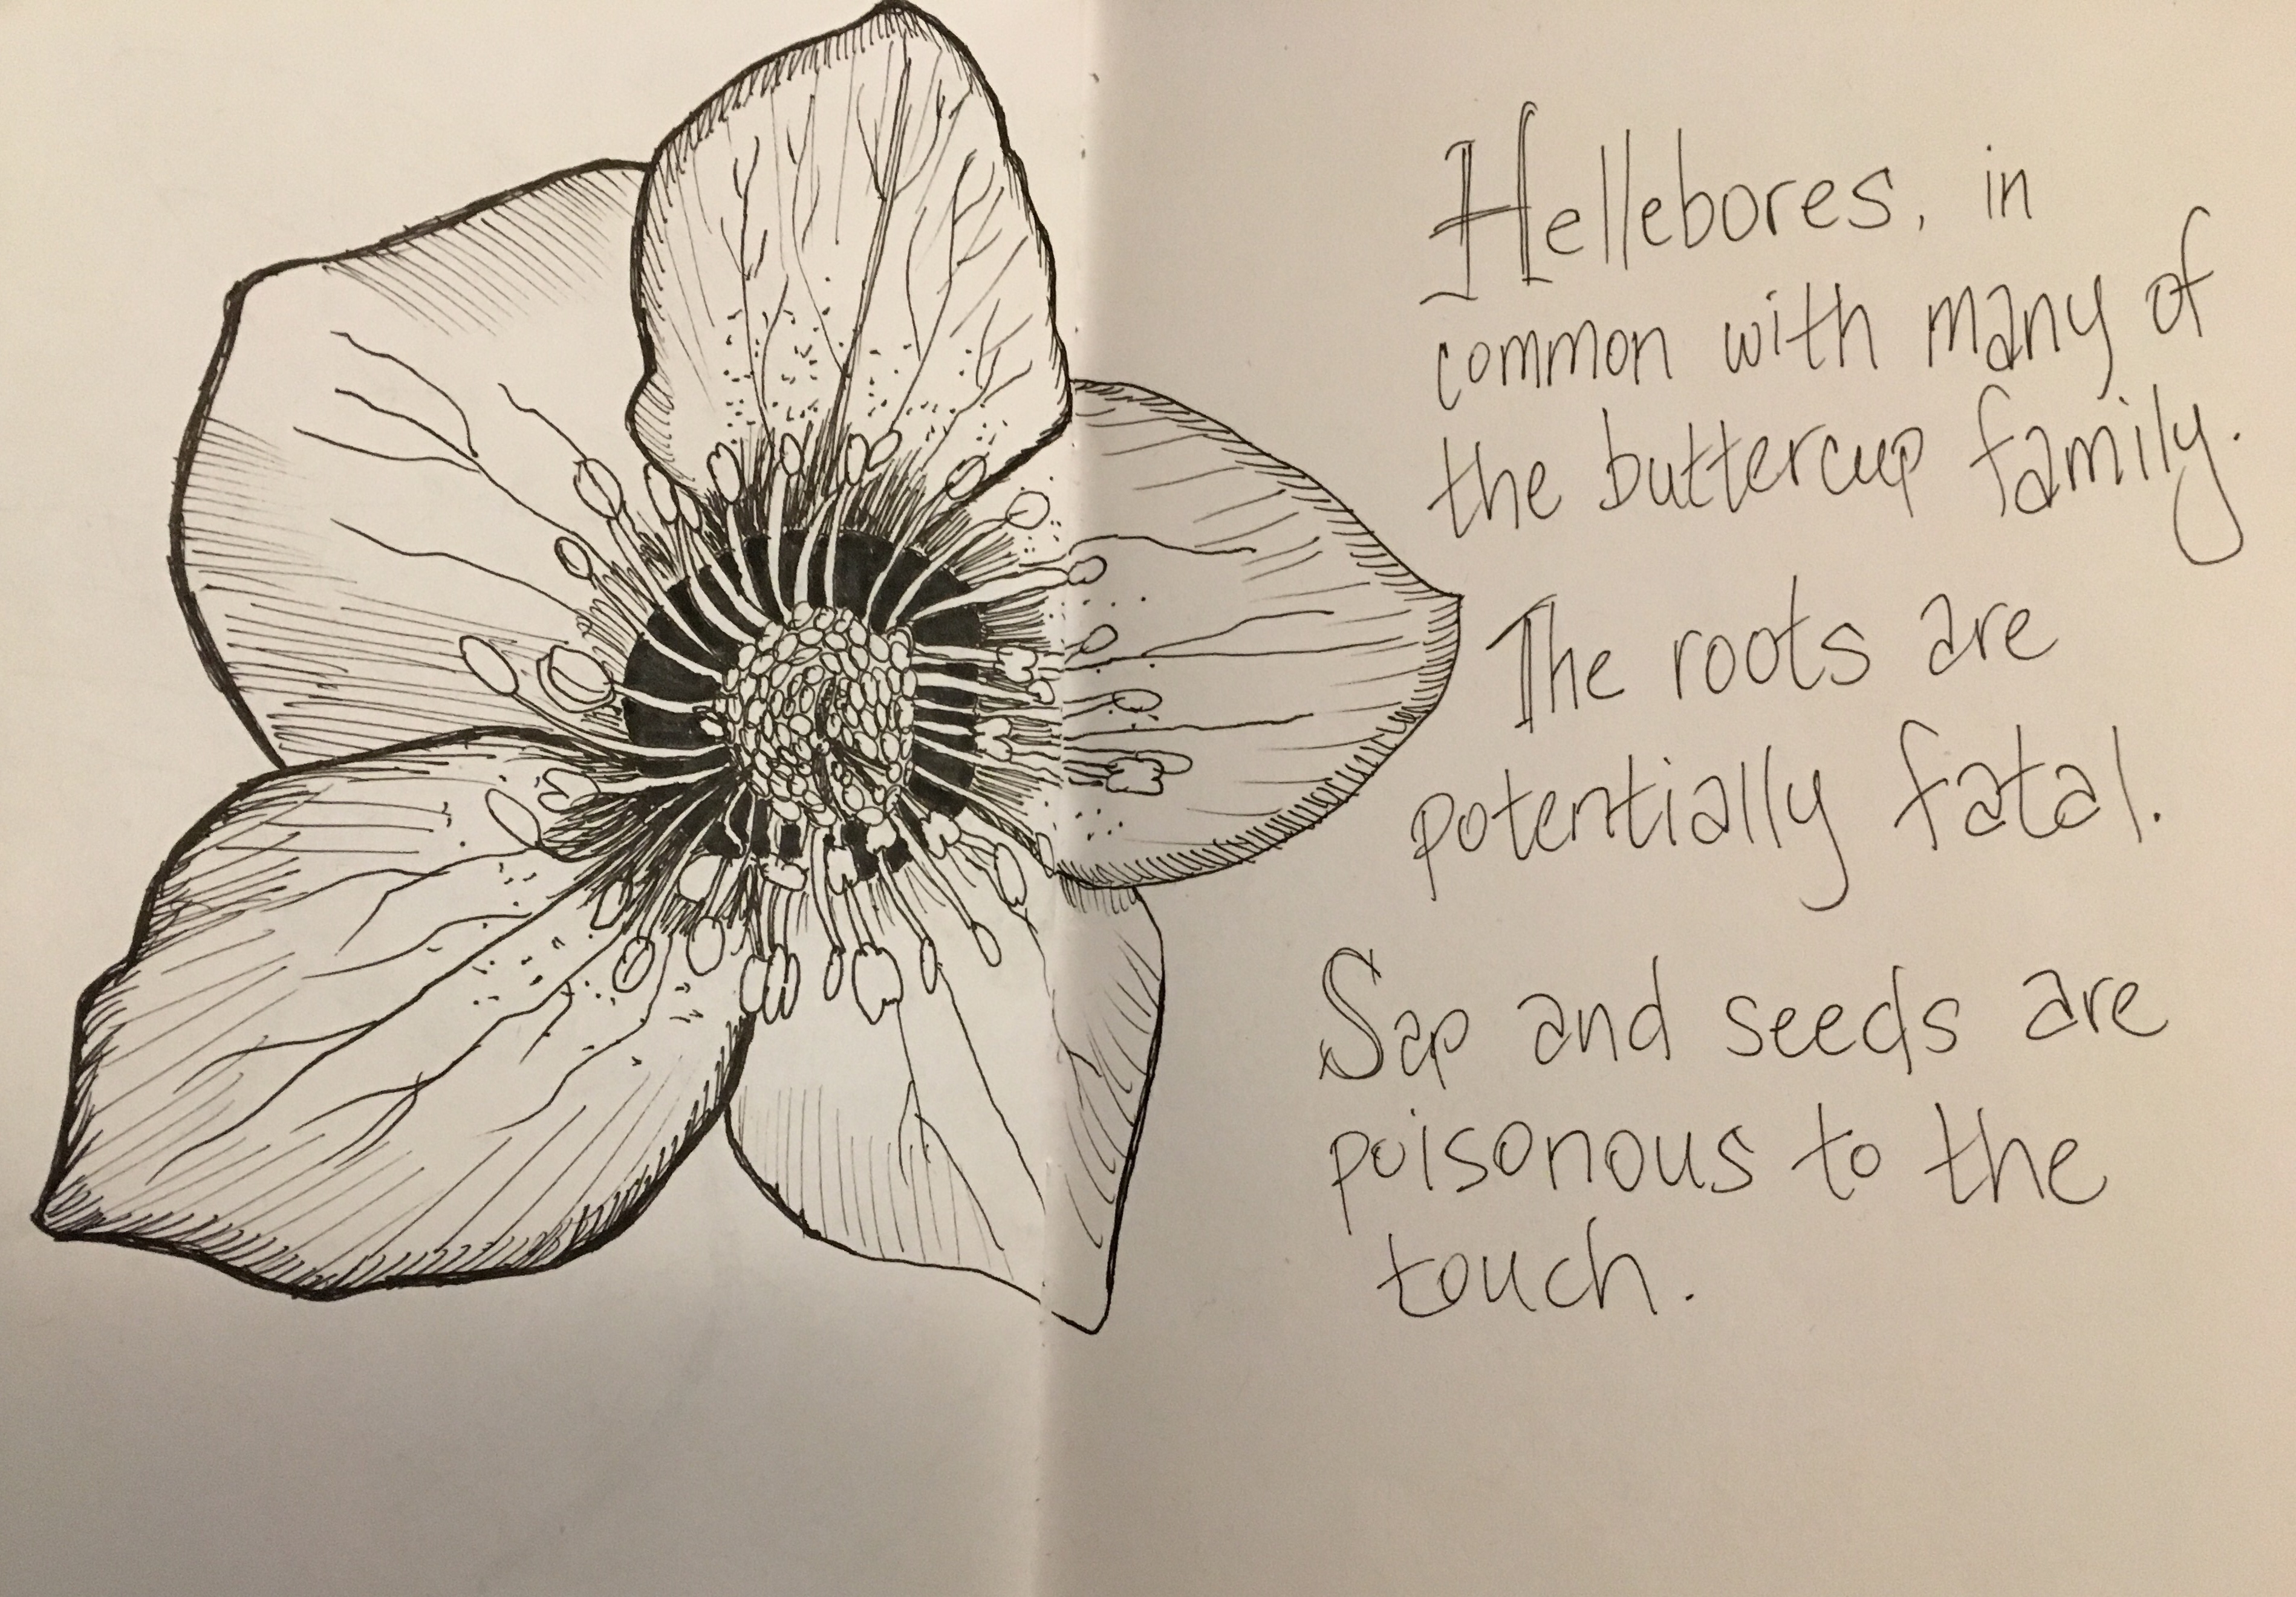 Hellebores, in
common with many of
the buttercup family.
The roots are
potentially fatal.
Sap and seeds are
poisonous to the
touch.